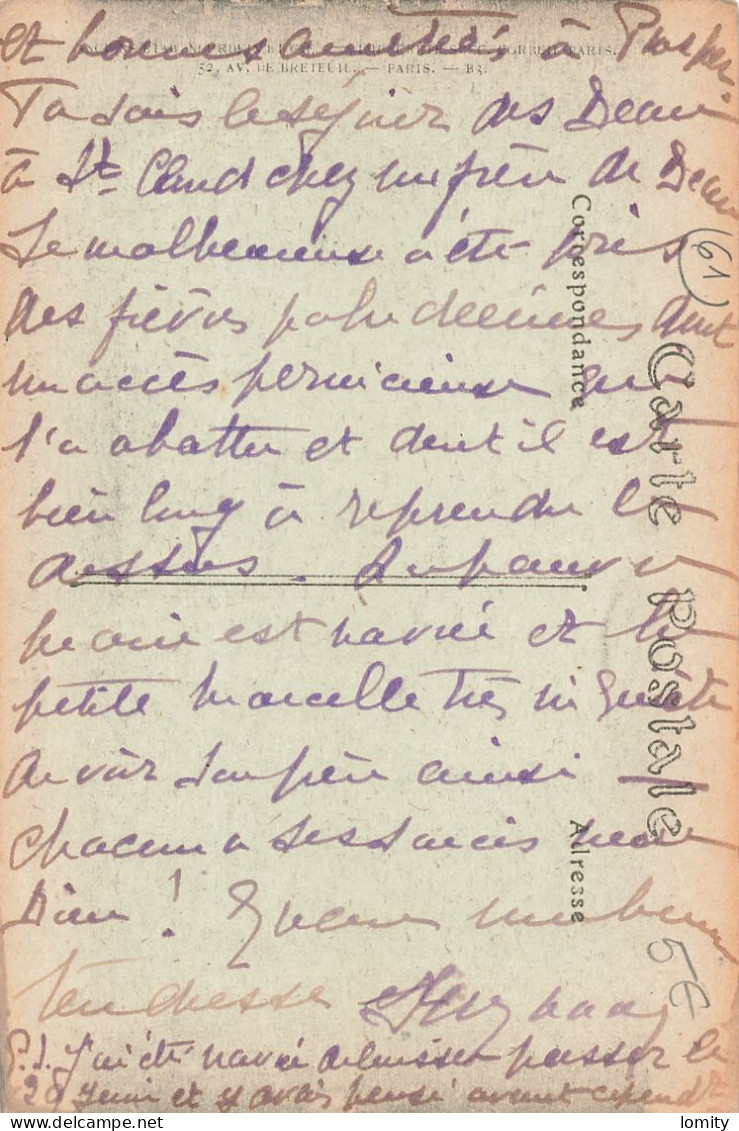 et bonnes amitiés à Prosper.
52, AV. DE BRETEUIL. — PARIS. — B3.
Tu sais le séjour des Deau
à St Cloud chez un frère de Deau
Le malheureux a été pris
(61)
des fièvres paludéennes dont
un accès pernicieux qui
l'a abattu et dont il est
bien long à reprendre le
dessus. La pauvre
Marie est navrée et la
petite Marcelle très inquiète
de voir son père ainsi
chacun a ses soucis mon
Dieu !
tendresse
P.S. J'ai été navrée de laisser passer le
29 Juin et y avais pensé avant cependt
Correspondance
Carte Postale
Adresse
5€
lomity